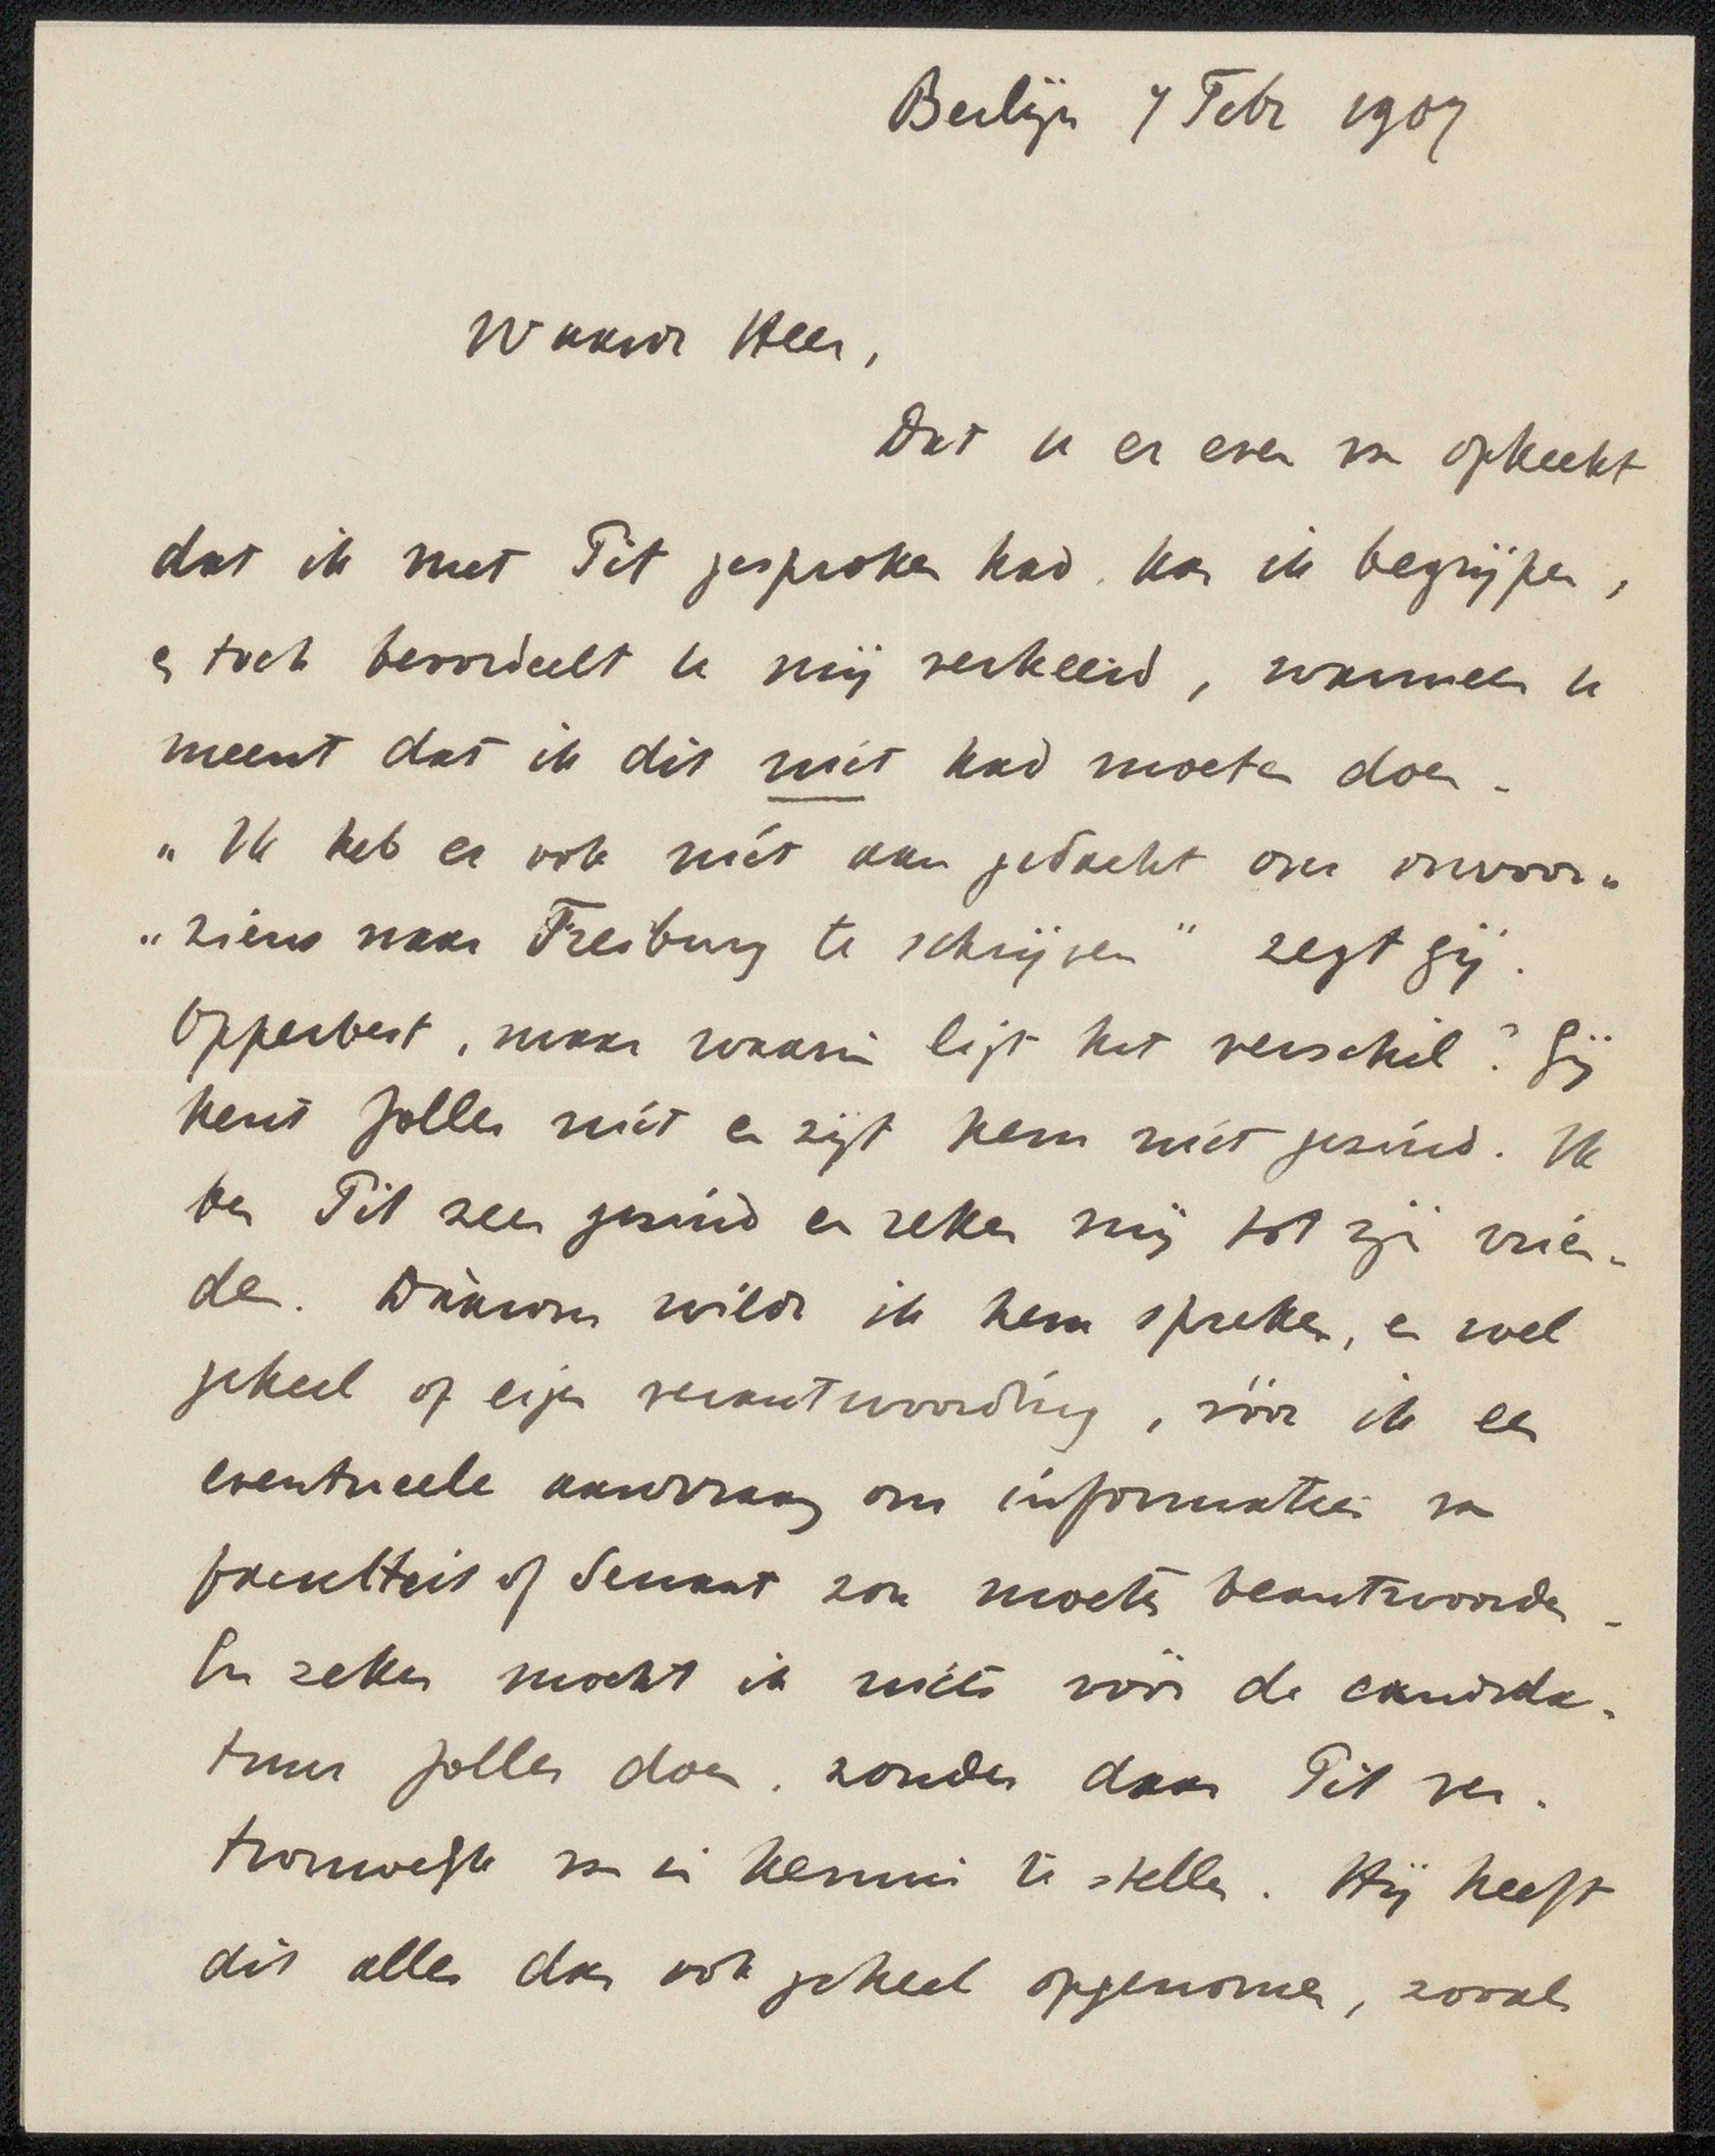 Berlijn 7 Febr 1907
Waarde Heer,
Dat u er even van opkeekt
dat ik met Pit gesproken had, kan ik begrijpen,
en toch beoordeelt u mij verkeerd, wanneer u
meent dat ik dit niet had moeten doen.
„Ik heb er ook niet aan gedacht om onvoor„
„ziens naar Freiburg te schrijven" zegt gij.
Opperbest, maar waarin ligt het verschil? Gij
kent Jolles niet en zijt hem niet gezind. Ik
ben Pit zeer gezind en reken mij tot zijn vrien-
den. Dáárom wilde ik hem spreken, en wel
geheel op eigen verantwoording, vóór ik een
eventueele aanvraag om informaties van
faculteit of Senaat zou moeten beantwoorden.
En zeker mocht ik niets vóór de candida-
tuur Jolles doen, zonder daar Pit ver-
trouwelijk van in kennis te stellen. Hij heeft
dit alles dan ook geheel opgenomen, zooals